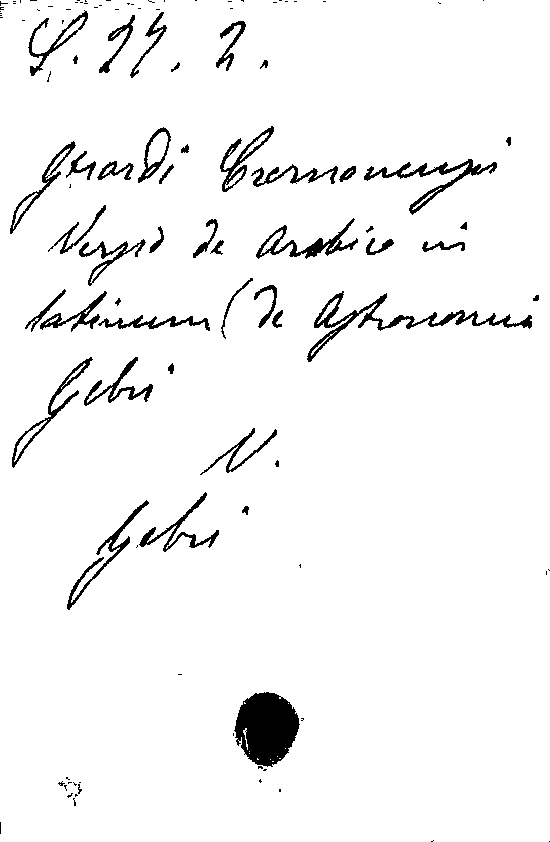 S. 27. 2.
Gerardi Cremonensis
Versio de Arabico in
latinum (de Astronomia
Gebri
V.
Gebri